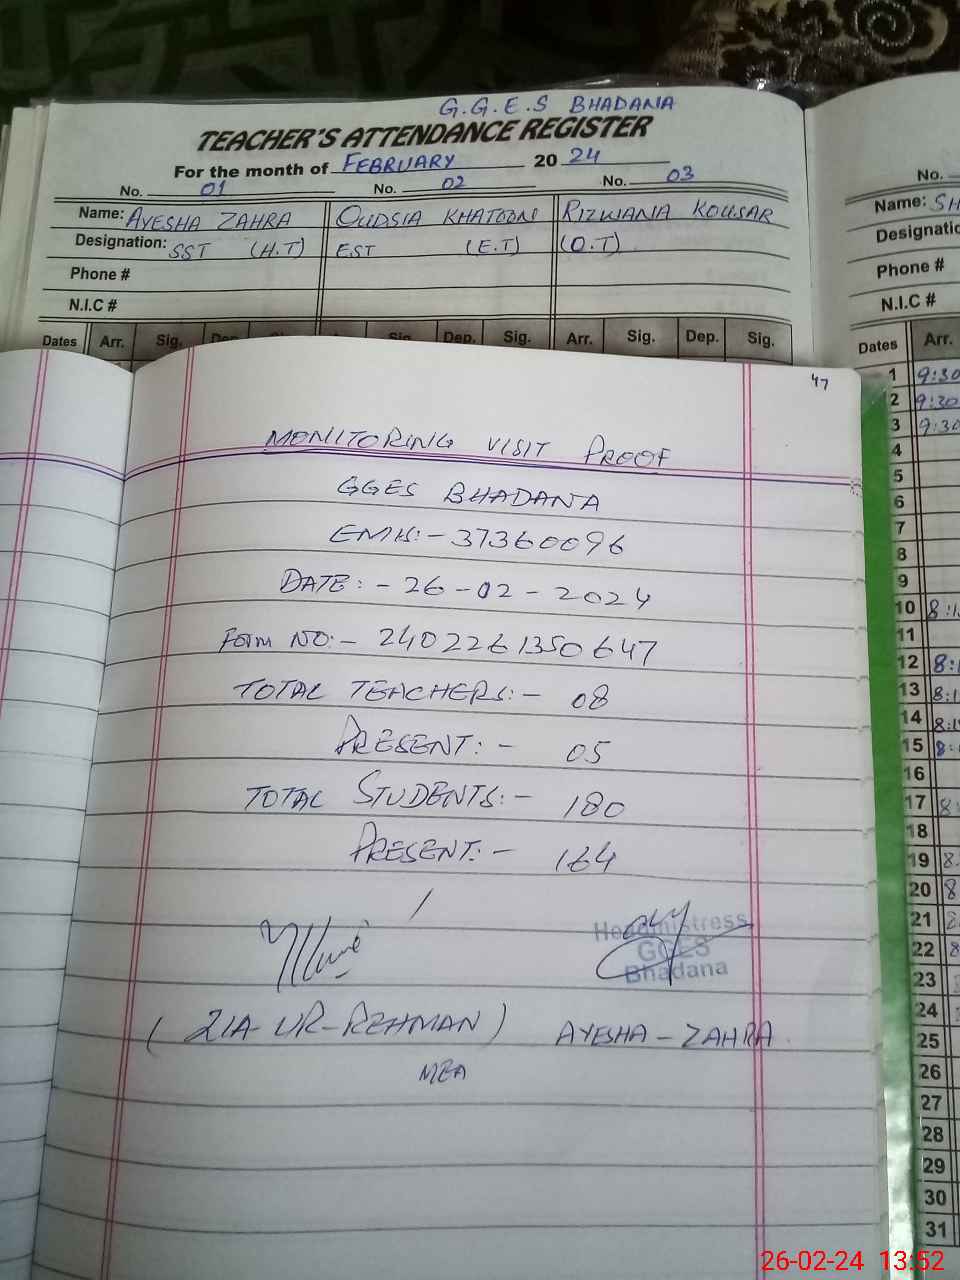 G.G.E.S BHADANA
TEACHER'S ATTENDANCE REGISTER
For the month of FEBRUARY 20 24
No. 01 No. 02 No. 03
Name: AYESHA ZAHRA QUDSIA KHATOON RIZWANA KOUSAR
Designation: SST (H.T) EST (E.T) (O.T)
Phone #
N.I.C #
Dates Arr. Sig. Dep. Sig. Arr. Sig. Dep. Sig.
No.
Name: SH
Designatio
Phone #
N.I.C #
Dates Arr.
1 9:30
2 9:30
3 9:30
4
5
6
7
8
9
10 8:1
11
12 8:1
13 8:1
14 8:1
15 8:
16
17 8:
18
19 8:
20 8
21 8
22 8
23
24
25
26
27
28
29
30
31
47
MONITORING VISIT PROOF
GGES BHADANA
EMIS:- 37360096
DATE:- 26-02-2024
Form NO:- 2402261350647
TOTAL TEACHERS:- 08
PRESENT:- 05
TOTAL STUDENTS:- 180
PRESENT:- 164
Headmistress
GGES
Bhadana
(ZIA-UR-REHMAN) AYESHA-ZAHRA.
MEA
26-02-24 13:52